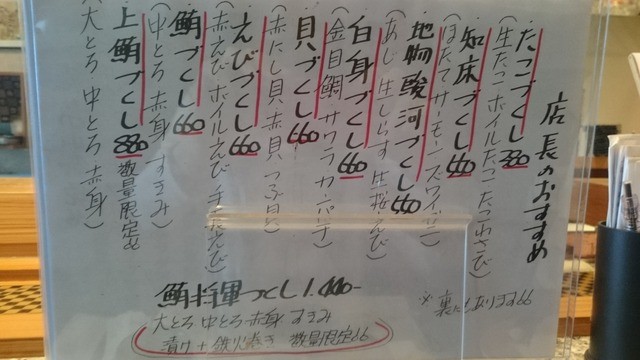 店長のおすすめ
たこづくし330
(生たこ ボイルたこ たこわさび)
知床づくし440
(ほたて サーモン ズワイガニ)
地物駿河づくし440
(あじ 生しらす 生桜えび)
白身づくし660
(金目鯛 サワラ カンパチ)
貝づくし660
(赤にし貝 赤貝 つぶ貝)
えびづくし660
(赤えび ボイルえび 手長えび)
鮪づくし660
(中とろ 赤身 すきみ)
上鮪づくし880 数量限定
(大とろ 中とろ 赤身)
大とろ 中とろ 赤身 すきみ
漬け 鉄火巻き 数量限定
※裏にもあります